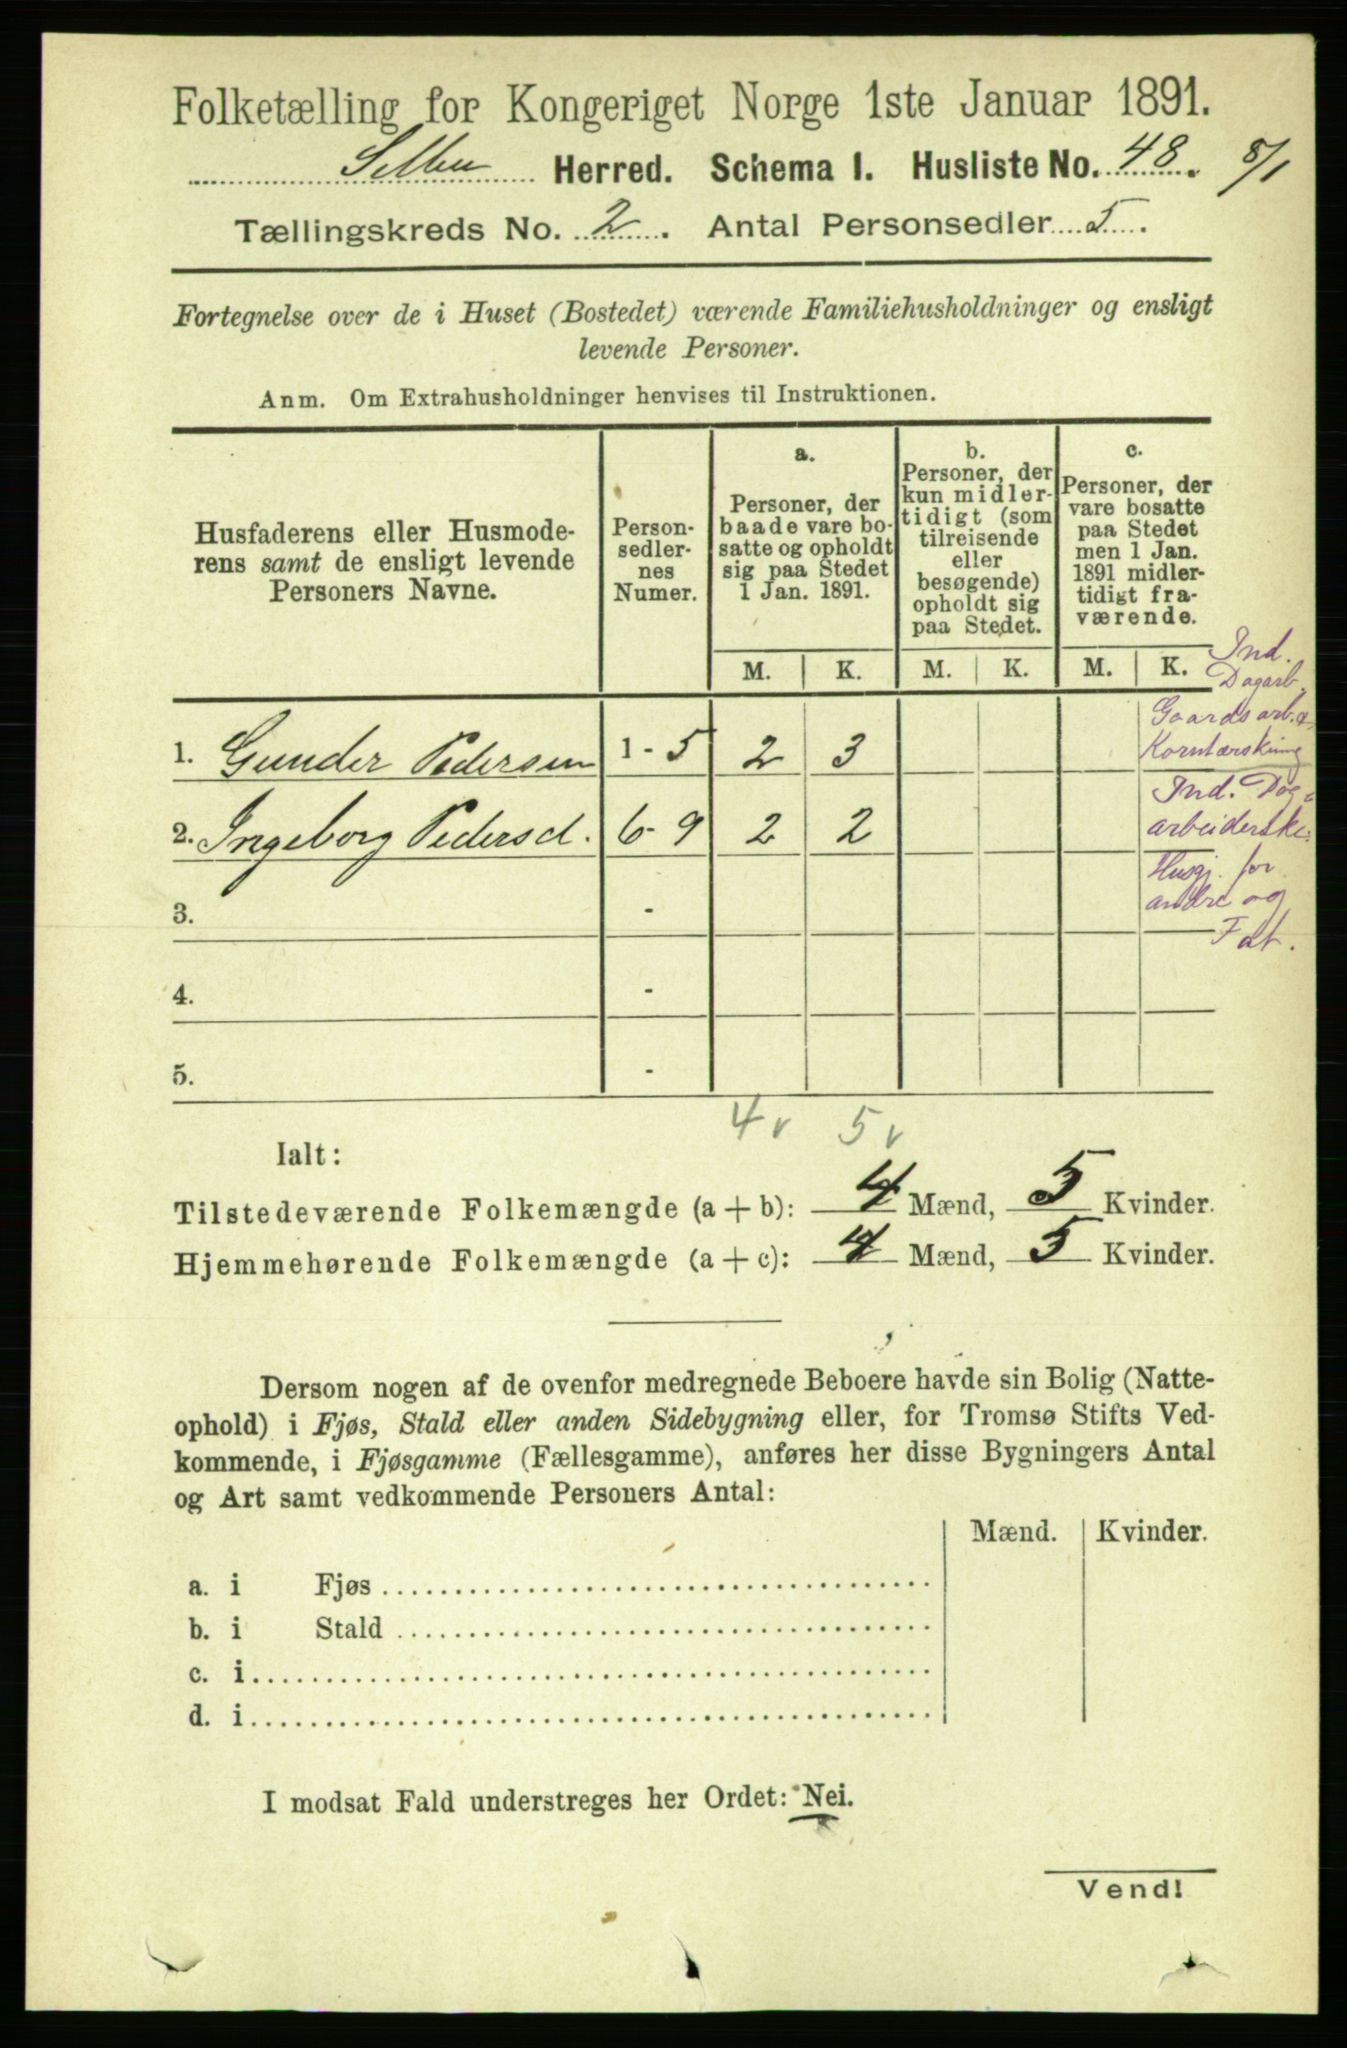 Folketælling for Kongeriget Norge 1ste Januar 1891.
Selbu Herred. Schema I. Husliste No. 48. 8/1
Tællingskreds No. 2. Antal Personsedler 5.
Fortegnelse over de i Huset (Bostedet) værende Familiehusholdninger og ensligt
levende Personer.
Anm. Om Extrahusholdninger henvises til Instruktionen.
Husfaderens eller Husmode-
rens samt de ensligt levende
Personers Navne.
Person-
sedler-
nes
Numer.
a.
Personer, der
baade vare bo-
satte og opholdt
sig paa Stedet
1 Jan. 1891.
b.
Personer, der
kun midler-
tidigt (som
tilreisende
eller
besøgende)
opholdt sig
paa Stedet.
c.
Personer, der
vare bosatte
paa Stedet
men 1 Jan.
1891 midler-
tidigt fra-
værende.
M. K. M. K. M. K.
Ind.
Dagarb.
Gaardsarb. &
Korntærskning
1. Gunder Pedersen 1 - 5 2 3
Ind. Dag-
arbeiderske.
2. Ingeborg Pedersd. 6 - 9 2 2
Husgj. for
andre og
Fat.
3. -
4. -
5. -
4 v 5 v
Ialt:
Tilstedeværende Folkemængde (a + b): 4 Mænd, 5 Kvinder.
Hjemmehørende Folkemængde (a + c): 4 Mænd, 5 Kvinder.
Dersom nogen af de ovenfor medregnede Beboere havde sin Bolig (Natte-
ophold) i Fjøs, Stald eller anden Sidebygning eller, for Tromsø Stifts Ved-
kommende, i Fjøsgamme (Fællesgamme), anføres her disse Bygningers Antal
og Art samt vedkommende Personers Antal:
Mænd. Kvinder.
a. i Fjøs
b. i Stald
c. i
d. i
I modsat Fald understreges her Ordet: Nei.
Vend!